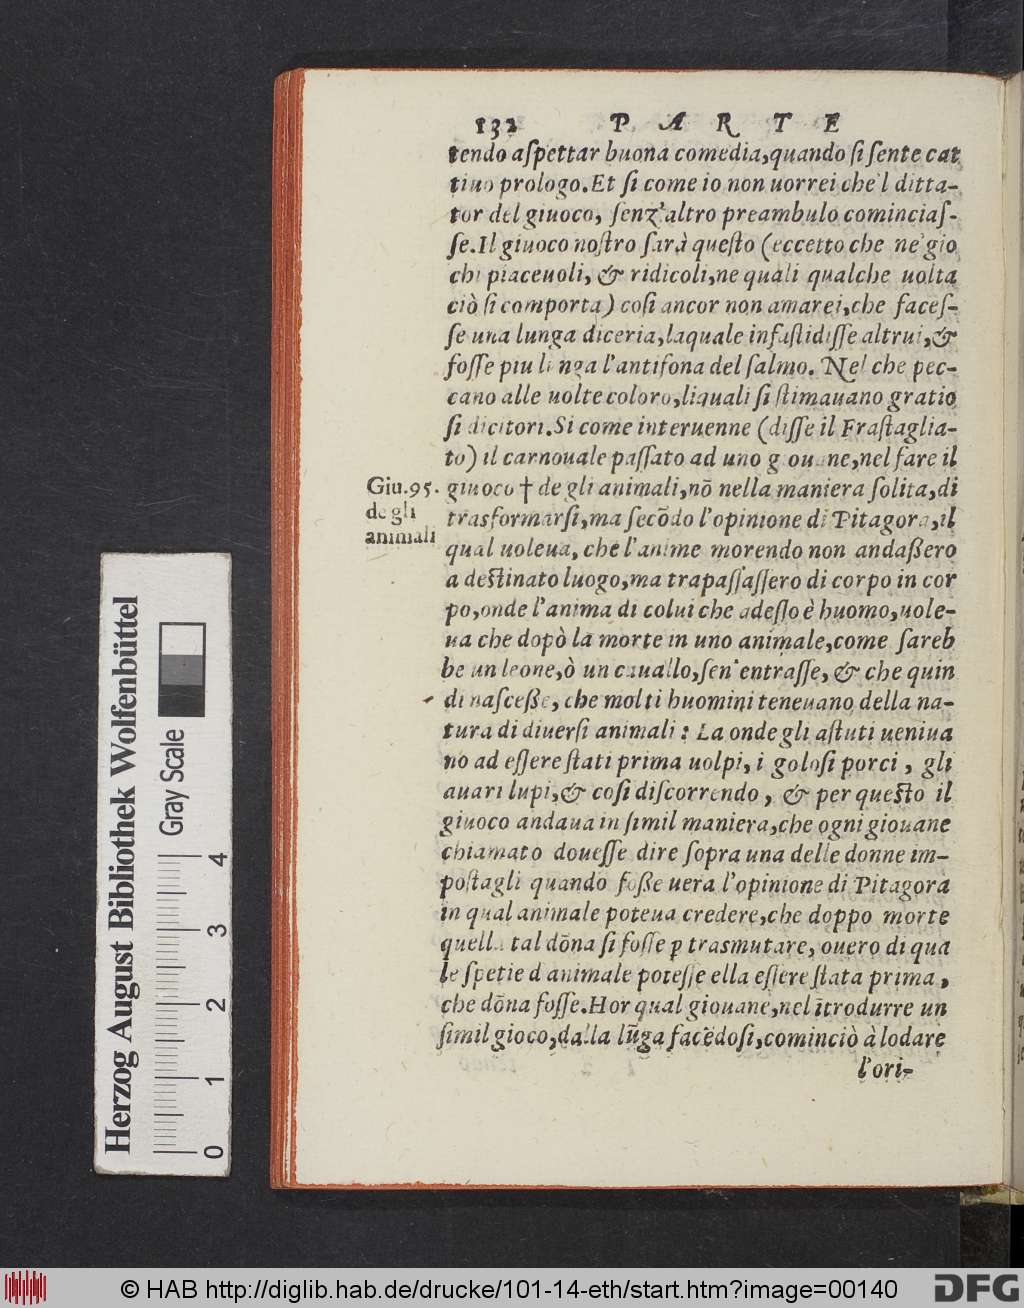 132 PARTE
tendo aſpettar buona comedia,quando ſi ſente cat
tiuo prologo.Et ſi come io non uorrei che'l ditta-
tor del giuoco, ſenz'altro preambulo cominciaſ-
ſe.Il giuoco noſtro ſarà queſto (eccetto che ne' gio
chi piaceuoli, & ridicoli,ne quali qualche uolta
ciò ſi comporta) coſi ancor non amarei,che faceſ-
ſe una lunga diceria,laquale infaſtidiſſe altrui,&
foſſe piu lunga l'antifona del ſalmo. Nel che pec-
cano alle uolte coloro,liquali ſi ſtimauano gratio
ſi dicitori.Si come interuenne (diſſe il Fraſtaglia-
to) il carnouale paſſato ad uno giouane,nel fare il
Giu.95. giuoco † de gli animali,nō nella maniera ſolita,di
de gli trasformarſi,ma ſecōdo l'opinione di Pitagora,il
animali qual uoleua, che l'anime morendo non andaßero
a deſtinato luogo,ma trapaſſaſſero di corpo in cor
po,onde l'anima di colui che adeſſo è huomo,uole-
ua che dopò la morte in uno animale,come ſareb
be un leone,ò un cauallo,ſen'entraſſe, & che quin
di naſceße, che molti huomini teneuano della na-
tura di diuerſi animali : La onde gli aſtuti ueniua
no ad eſſere ſtati prima uolpi, i goloſi porci , gli
auari lupi,& coſi diſcorrendo , & per queſto il
giuoco andaua in ſimil maniera,che ogni giouane
chiamato doueſſe dire ſopra una delle donne im-
poſtagli quando foße uera l'opinione di Pitagora
in qual animale poteua credere,che doppo morte
quella tal dōna ſi foſſe ꝑ trasmutare, ouero di qua
le ſpetie d'animale poteſſe ella eſſere ſtata prima ,
che dōna foſſe.Hor qual giouane,nel ĩtrodurre un
ſimil gioco,dalla lūga facēdoſi,cominciò à lodare
l'ori-
Herzog August Bibliothek Wolfenbüttel
Gray Scale
0 1 2 3 4
© HAB http://diglib.hab.de/drucke/101-14-eth/start.htm?image=00140
DFG